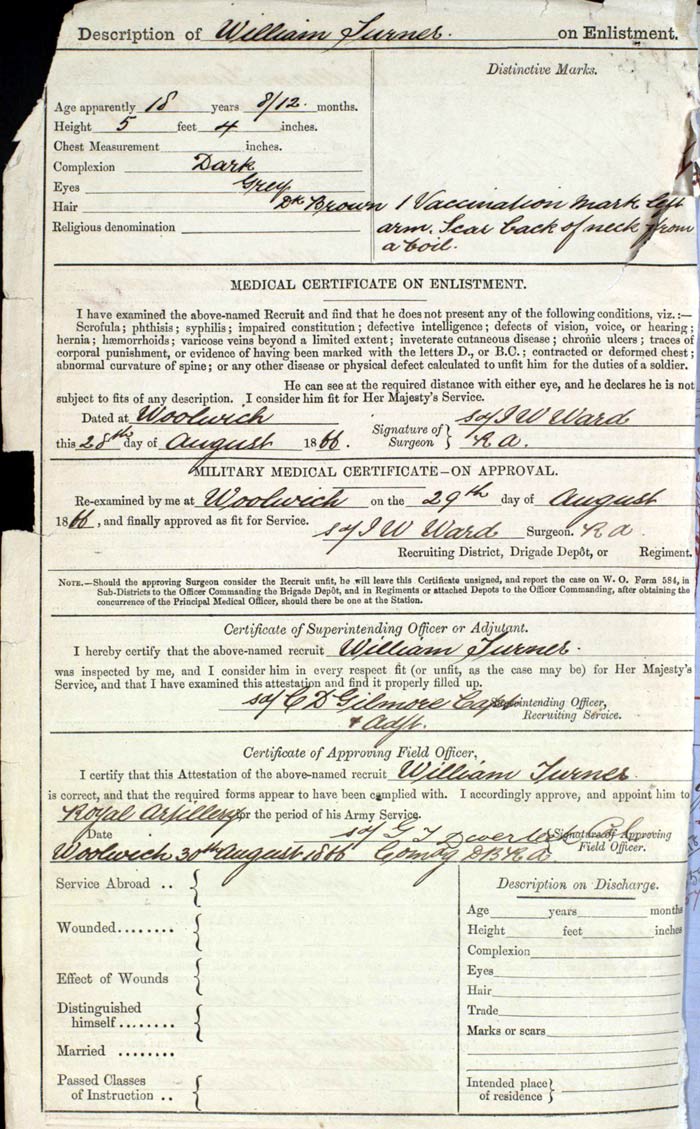 Description of William Turner. on Enlistment.
Age apparently 18 years 8/12 months.
Height 5 feet 4 inches.
Chest Measurement inches.
Complexion Dark
Eyes Grey
Hair Dk Brown
Religious denomination
Distinctive Marks.
1 Vaccination mark left
arm. Scar back of neck from
a boil.
MEDICAL CERTIFICATE ON ENLISTMENT.
I have examined the above-named Recruit and find that he does not present any of the following conditions, viz.:—
Scrofula; phthisis; syphilis; impaired constitution; defective intelligence; defects of vision, voice, or hearing;
hernia; hæmorrhoids; varicose veins beyond a limited extent; inveterate cutaneous disease; chronic ulcers; traces of
corporal punishment, or evidence of having been marked with the letters D., or B.C.; contracted or deformed chest;
abnormal curvature of spine; or any other disease or physical defect calculated to unfit him for the duties of a soldier.
He can see at the required distance with either eye, and he declares he is not
subject to fits of any description. I consider him fit for Her Majesty's Service.
Dated at Woolwich
this 28th day of August 1866.
Signature of Surgeon } J W Ward
R A.
MILITARY MEDICAL CERTIFICATE—ON APPROVAL.
Re-examined by me at Woolwich on the 29th day of August
1866, and finally approved as fit for Service.
J W Ward Surgeon. R A.
Recruiting District, Drigade Depôt, or Regiment.
NOTE.—Should the approving Surgeon consider the Recruit unfit, he will leave this Certificate unsigned, and report the case on W. O. Form 584, in
Sub-Districts to the Officer Commanding the Brigade Depôt, and in Regiments or attached Depots to the Officer Commanding, after obtaining the
concurrence of the Principal Medical Officer, should there be one at the Station.
Certificate of Superintending Officer or Adjutant.
I hereby certify that the above-named recruit William Turner.
was inspected by me, and I consider him in every respect fit (or unfit, as the case may be) for Her Majesty's
Service, and that I have examined this attestation and find it properly filled up.
C D Gilmore Capt Superintending Officer,
& Adjt. Recruiting Service.
Certificate of Approving Field Officer.
I certify that this Attestation of the above-named recruit William Turner
is correct, and that the required forms appear to have been complied with. I accordingly approve, and appoint him to
Royal Artillery for the period of his Army Service.
Date Signature of Approving
Woolwich 30th August 1866 Comdg D B R A Field Officer.
Service Abroad .. {
Wounded........ {
Effect of Wounds {
Distinguished
himself ........ {
Married ........
Passed Classes
of Instruction .. {
Description on Discharge.
Age years months
Height feet inches
Complexion
Eyes
Hair
Trade
Marks or scars
Intended place
of residence }